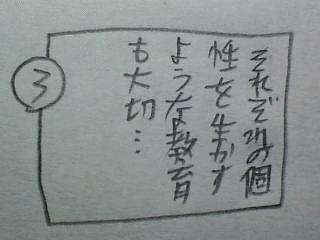 3
それぞれの個
性を生かす
ような教育
も大切…